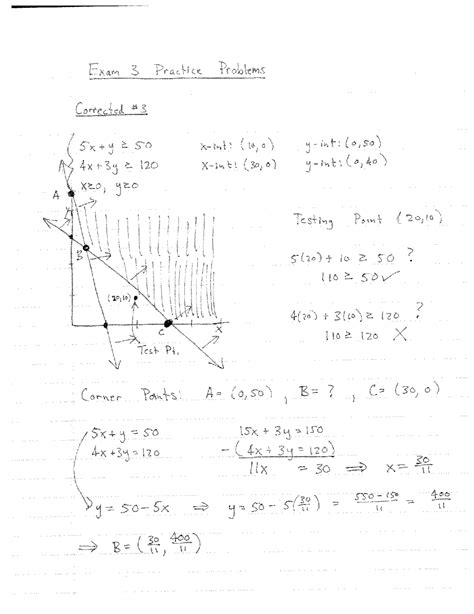 Exam 3 Practice Problems
Corrected #3
5x + y ≥ 50 x-int: (10,0) y-int: (0,50)
4x + 3y ≥ 120 x-int: (30,0) y-int: (0,40)
x≥0, y≥0
A
B
(20,10)
C
X
Test Pt.
Testing Point (20,10)
5(20) + 10 ≥ 50 ?
110 ≥ 50 ✓
4(20) + 3(10) ≥ 120 ?
110 ≥ 120 X
Corner Points: A = (0,50), B = ?, C = (30,0)
5x + y = 50 15x + 3y = 150
4x + 3y = 120 - (4x + 3y = 120)
11x = 30 ⟹ x = 30/11
y = 50 - 5x ⟹ y = 50 - 5(30/11) = 550-150/11 = 400/11
⟹ B = (30/11, 400/11)